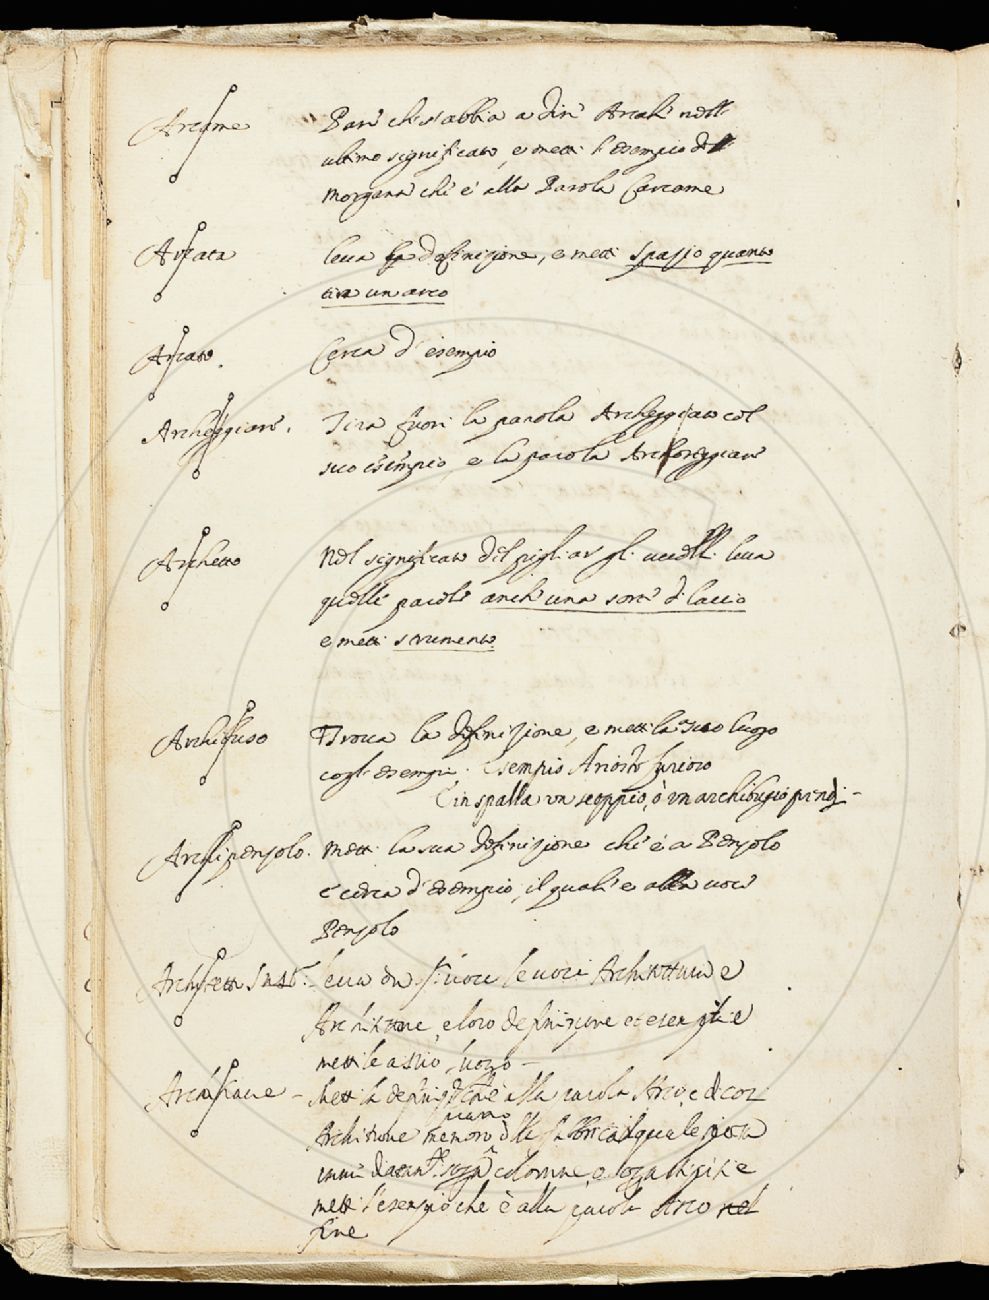 Arcame Pare che s'abbia a dire Arcale nell
ultimo significato, e metti l'esempio del
Morgante che è alla Parola Carcame
Arcata leva la definizione, e metti spazio quanto
tira un arco
Arcato. Cerca d'esempio
Archeggiare. Tira fuori la parola Archeggiato col
suo esempio, e la parola Archoreggiare
Archetto Nel significato del pigliar gli uccelli leva
quelle parole anche una sorte di laccio
e metti strumento.
Archibuso Trova la definizione, e mettila a suo luogo
cogl'esempi. Esempio Ariosto furioso
E in spalla un scoppio, o un archibugio prendi-
Archipenzolo. Metti la sua definizione che è a Penzolo
e cerca d'esempio, il quale è alla voce
Penzolo
leva le voci Architettura e
Architrave, e loro definizione et esempli e
mettile a suo luogo-
Architrave - Metti la definizione che è alla parola Arco, e dì così
Architrave membro della fabbrica, il quale posa
colonne, e
metti l'esempio che è alla parola Arco nel
fine